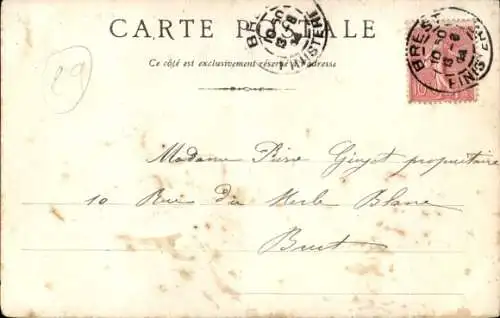 CARTE POSTALE
Ce côté est exclusivement réservé à l'adresse
29
BREST
10 50
13 -8
04
FINISTERE
BREST
10 50
13 -8
04
FINISTERE
10
Madame Pière Guyot propriétaire
10 Rue du Merle Blanc
Brest